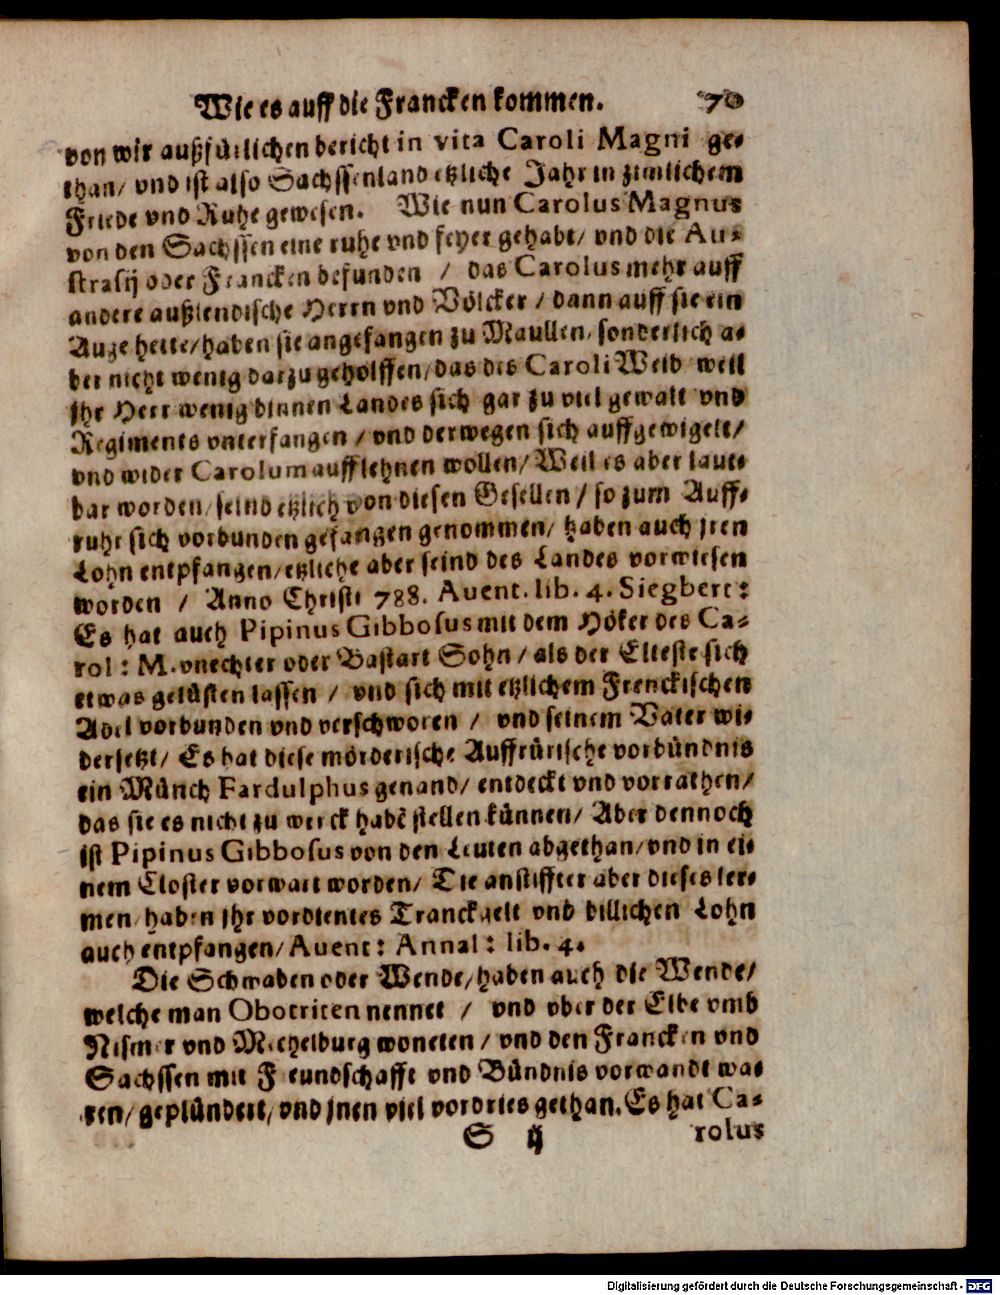 Wie es auff die Francken kommen. 70
von wir außfürlichen bericht in vita Caroli Magni ge⸗
than/ vnd ist also Sachssenland etzliche Jahr in zimlichem
Friede vnd Ruhe gewesen. Wie nun Carolus Magnus
von den Sachssen eine ruhe vnd feyer gehabt/ vnd die Au⸗
strasij oder Francken befunden / das Carolus mehr auff
andere außlendische Herrn vnd Völcker / dann auff sie ein
Auge hette/ haben sie angefangen zu Maullen/ sonderlich a⸗
ber nicht wenig darzu geholffen/ das des Caroli Weib weil
jhr Herr wenig binnen Landes sich gar zu viel gewalt vnd
Regiments vnterfangen / vnd derwegen sich auffgewigelt/
vnd wider Carolum aufflehnen wollen/ Weil es aber laut⸗
bar worden/ seind etzlich von diesen Gesellen / so zum Auff⸗
ruhr sich vorbunden gefangen genommen/ haben auch jren
Lohn entpfangen/ etzliche aber seind des Landes vorwiesen
worden / Anno Christi 788. Auent. lib. 4. Siegbert:
Es hat auch Pipinus Gibbosus mit dem Höker des Ca⸗
rol: M. vnechter oder Bastart Sohn / als der Elteste sich
etwas gelüsten lassen / vnd sich mit etzlichem Frenckischen
Adel vorbunden vnd verschworen / vnd seinem Vater wi⸗
dersetzt/ Es hat diese mörderische Auffrürische vorbündnis
ein Münch Fardulphus genand/ entdeckt vnd vorrathen/
das sie es nicht zu werck habẽ stellen künnen/ Aber dennoch
ist Pipinus Gibbosus von den Leuten abgethan/ vnd in ei⸗
nem Closter vorwart worden/ Die anstiffter aber dieses ler⸗
men/ haben jhr vordientes Tranckgelt vnd billichen Lohn
auch entpfangen/ Auent: Annal: lib. 4.
Die Schwaben oder Wende/ haben auch die Wende/
welche man Obotriten nennet / vnd vber der Elbe vmb
Wismer vnd Mechelburg woneten / vnd den Francken vnd
Sachssen mit Freundschafft vnd Bündnis vorwandt wa⸗
ren/ geplündert/ vnd jnen viel vordries gethan. Es hat Ca⸗
S ij rolus
Digitalisierung gefördert durch die Deutsche Forschungsgemeinschaft - DFG